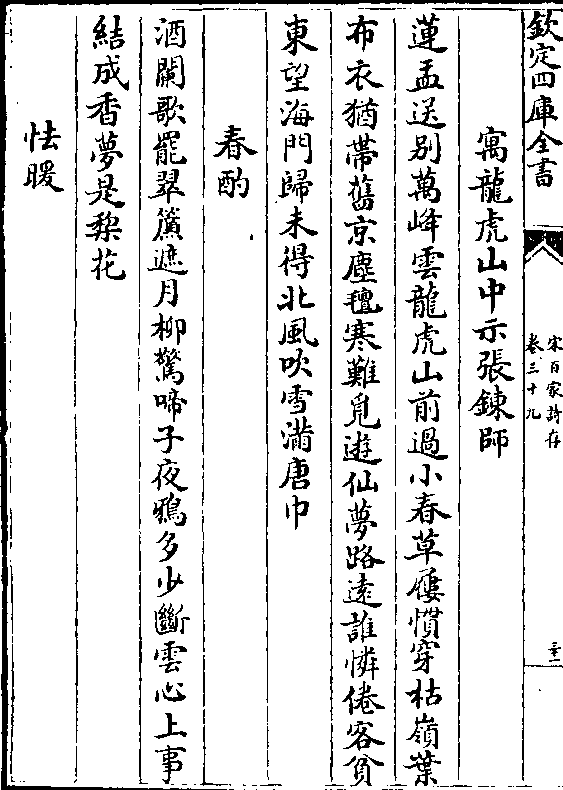 欽定四庫全書
宋百家詩存
卷三十九
三十一
寓龍虎山中示張鍊師
蓮盂送別萬峰雲龍虎山前過小春草屨慣穿枯嶺葉
布衣猶帶舊京塵氊寒難覓遊仙夢路遠誰憐倦客貧
東望海門歸未得北風吹雪滿唐巾
春酌
酒闌歌罷翠簾遮月柳驚啼子夜鴉多少斷雲心上事
結成香夢是棃花
怯暖